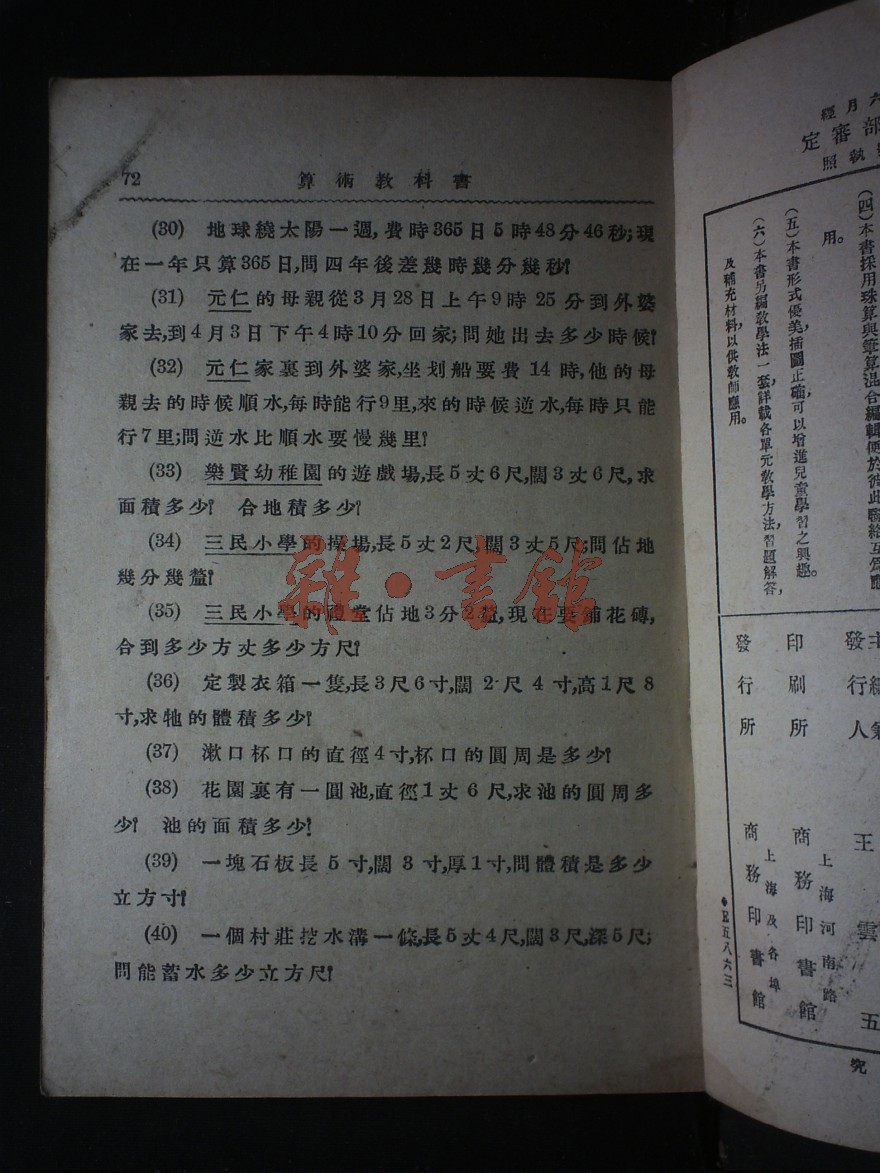 72 算術教科書
(30) 地球繞太陽一週,費時365日5時48分46秒;現
在一年只算365日,問四年後差幾時幾分幾秒?
(31) 元仁的母親從3月28日上午9時25分到外婆
家去,到4月3日下午4時10分回家;問她出去多少時候?
(32) 元仁家裏到外婆家,坐划船要費14時,他的母
親去的時候順水,每時能行9里,來的時候逆水,每時只能
行7里;問逆水比順水要慢幾里?
(33) 樂賢幼稚園的遊戲場,長5丈6尺,闊3丈6尺,求
面積多少? 合地積多少?
(34) 三民小學的操場,長5丈2尺,闊3丈5尺;問佔地
幾分幾釐?
(35) 三民小學的禮堂佔地3分2釐,現在要鋪花磚,
合到多少方丈多少方尺?
(36) 定製衣箱一隻,長3尺6寸,闊2尺4寸,高1尺8
寸,求牠的體積多少?
(37) 漱口杯口的直徑4寸,杯口的圓周是多少?
(38) 花園裏有一圓池,直徑1丈6尺,求池的圓周多
少? 池的面積多少?
(39) 一塊石板長5寸,闊3寸,厚1寸,問體積是多少
立方寸?
(40) 一個村莊挖水溝一條,長5丈4尺,闊3尺,深5尺;
問能蓄水多少立方尺?
雜·書館
六月經
部審定
執照
(四)本書採用珠算與筆算混合編輯便於彼此聯絡互爲應
用。
(五)本書形式優美,插圖正確,可以增進兒童學習之興趣。
(六)本書另編教學法一套,詳載各單元教學方法,習題解答,
及補充材料,以供教師應用。
發行人 王雲五
上海河南路
印刷所 商務印書館
上海及各埠
發行所 商務印書館
E五八六三
究